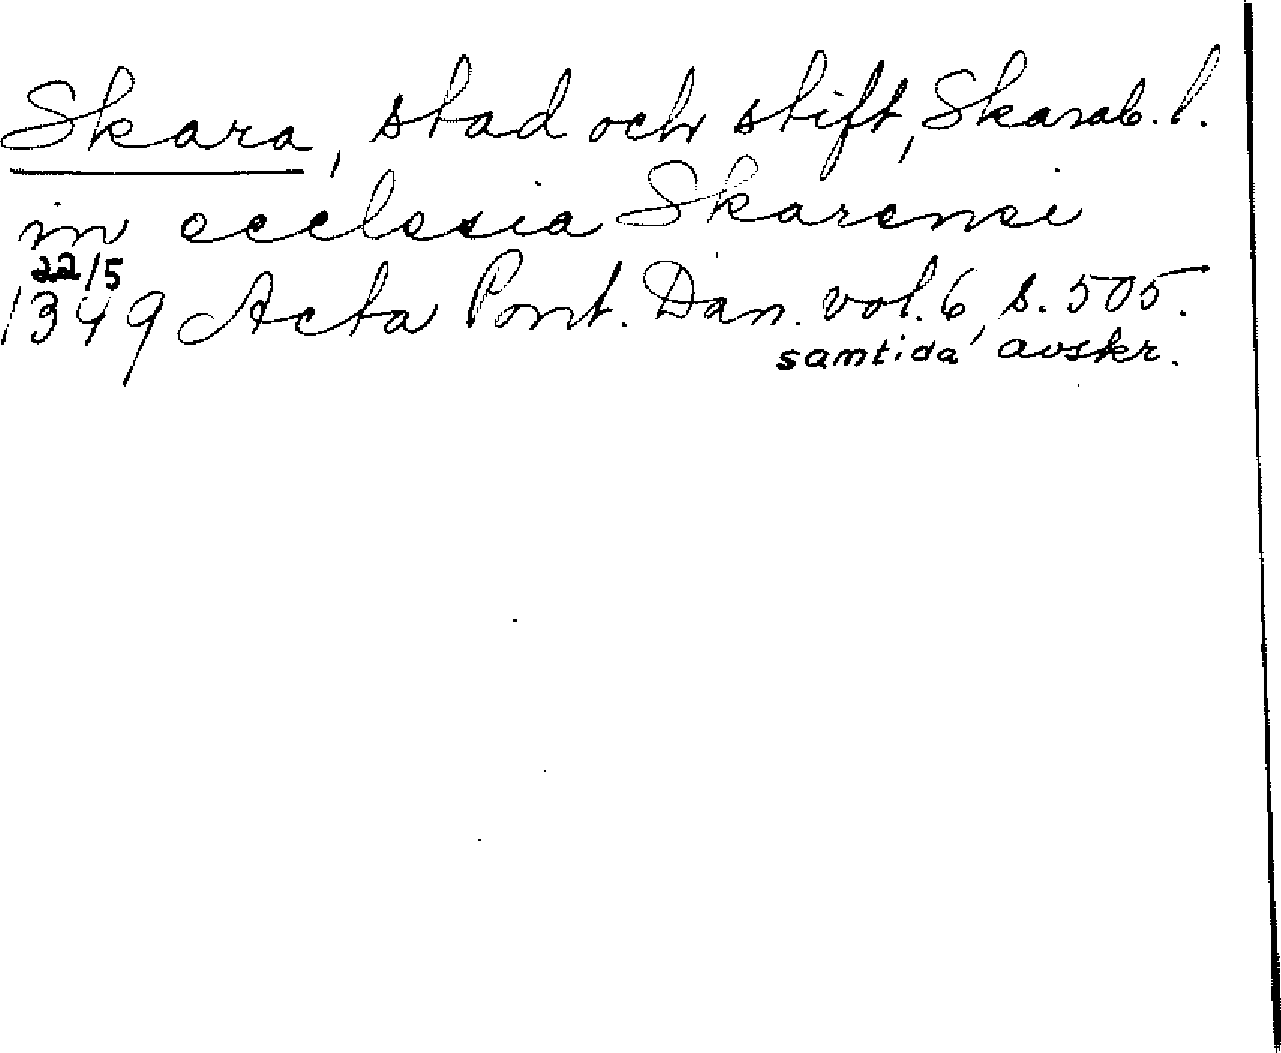 Skara, stad och stift, Skarab. l.
in ecclesia Skarensi
22/5
1349 Acta Pont. Dan. vol. 6, s. 505.
samtida avskr.